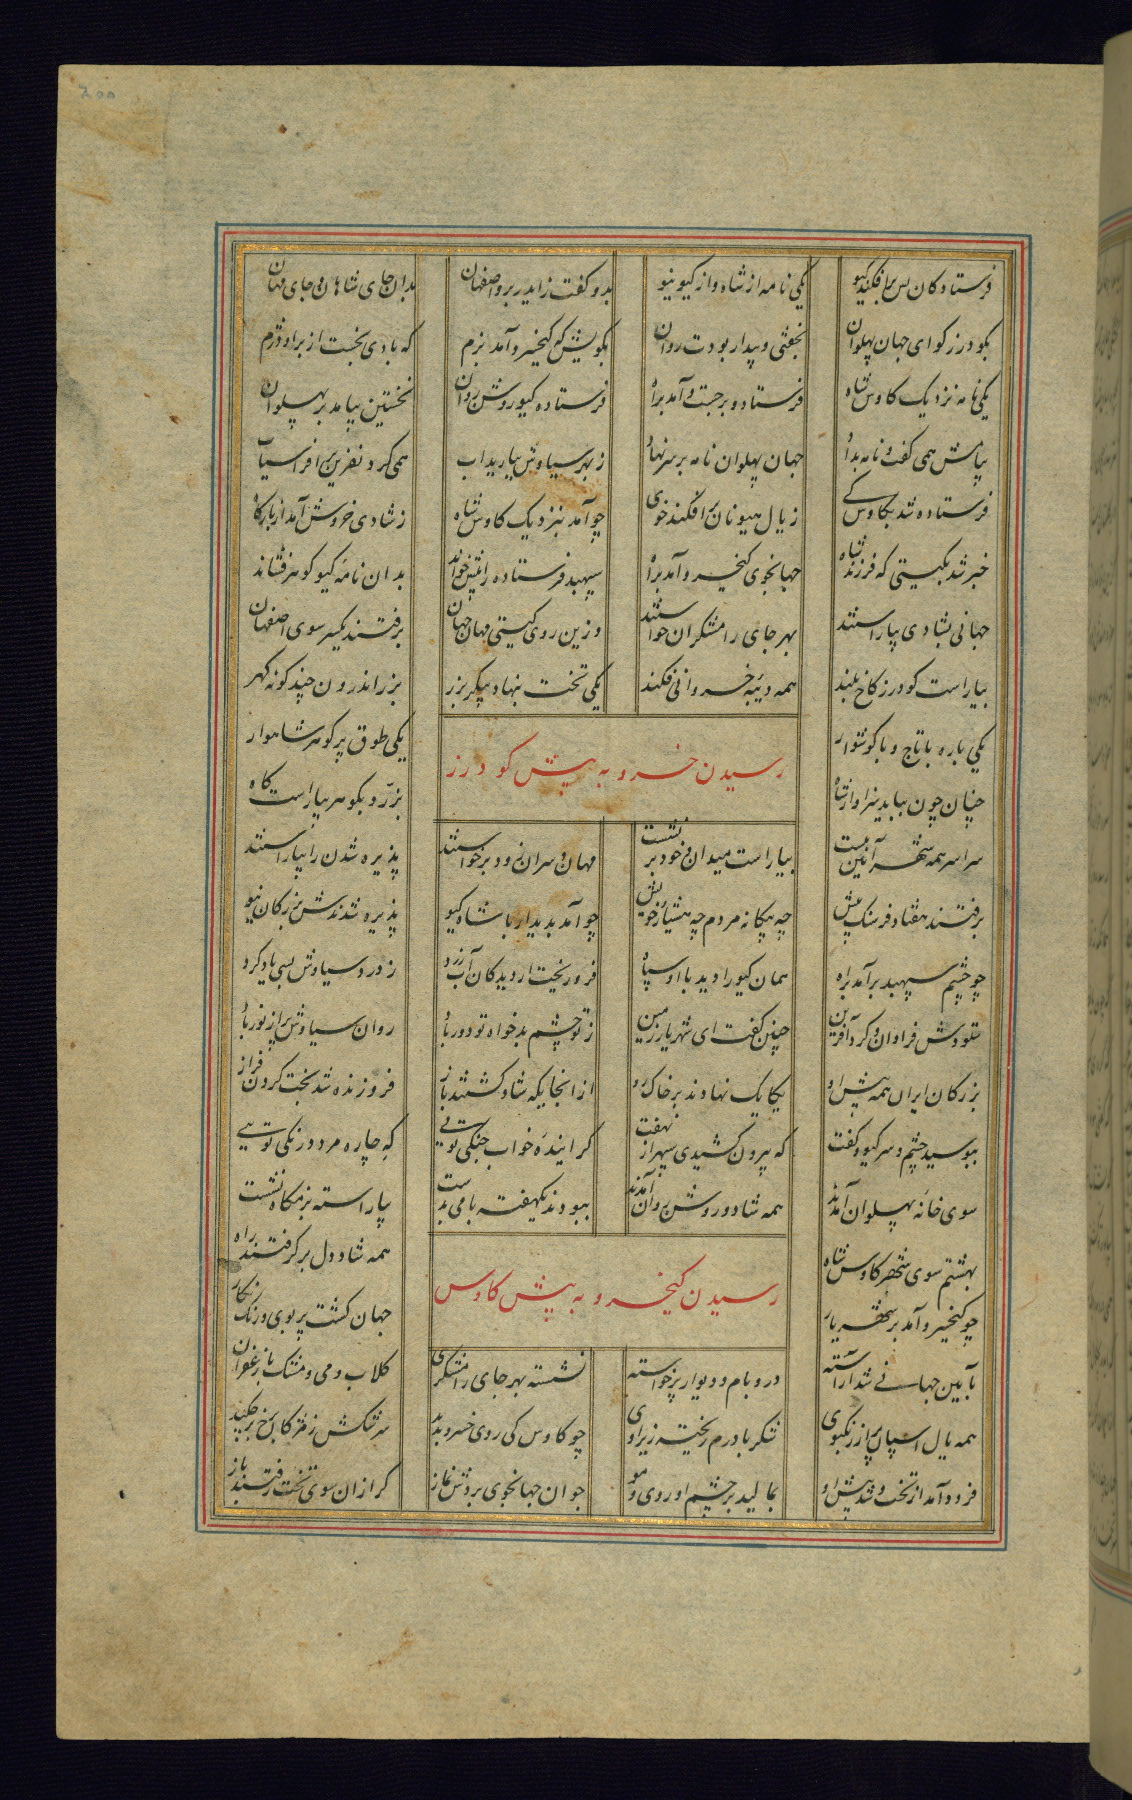 فرستادگان بس برافکند گیو یکی نامه از شاه وز گیو نیو بدو گفت زایدر برو اصفهان بدان جای شاهان و جای مهان
بگودرز گو ای جهان پهلوان نخفتی و بیدار بودت روان بگویش که کیخسرو آمد بزم که بادی نجست از بر او دژم
یکی نامه نزدیک کاوس شاه فرستاد و برجست و آمد براه فرستاده گیو روشن روان نخستین بیامد بر پهلوان
پیامش همی گفت و نامه بداد جهان پهلوان نامه بر سر نهاد ز بهر سیاوش ببارید آب همی کرد نفرین بر افراسیاب
فرستاده شد بکاوس کی ز یال هیونان برافکند خوی چو آمد بنزدیک کاوس شاه ز شادی خروش آمد از بارگاه
خبر شد بگیتی که فرزند شاه جهانجوی کیخسرو آمد براه سپهبد فرستاده را پیش خواند بدان نامهٔ گیو گوهر فشاند
جهانی بشادی بیاراستند بهر جای رامشگران خواستند وزین روی گیتی مهان جهان برفتند یکسر سوی اصفهان
بیاراست گودرز کاخ بلند همه دیبهٔ خسروانی فکند یکی تخت بنهاد پیکر بزر بزر اندرون چند گونه گهر
یکی یاره با تاج و با گوشوار یکی طوق پر گوهر شاهوار
رسیدن خسرو به پیش گودرز
چنان چون بباید سزاوار شاه بزر و بگوهر بیاراست گاه
سراسر همه شهر آیین ببست بیاراست میدان و خود بر نشست مهان و سران زود برخاستند پذیره شدن را بیاراستند
برفتند هفتاد فرسنگ پیش چه بیگانه مردم چه هشیار خویش چو آمد بدیدار با شاه گیو پذیره شدندش بزرگان نیو
چو چشم سپهبد برآمد براه همان گیو را دید با او سپاه فرو ریخت از دیدگان آب زرد ز درد سیاوش بسی یاد کرد
ستودش فراوان و کرد آفرین چنین گفت ای شهریار زمین ز تو چشم بدخواه تو دور باد روان سیاوش پر از نور باد
بزرگان ایران همه پیش او یکایک نهادند بر خاک رو از آنجایگه شاد گشتند باز فروزنده شد بخت گردن فراز
ببوسید چشم و سر گیو و گفت که بیرون کشیدی سپهر از نهفت گرایندهٔ خواب جنگی تویی که چاره مرد درنگی تویی
سوی خانهٔ پهلوان آمدند همه شاد و روشن روان آمدند ببودند یکهفته با می بدست بیاراسته بزمگاه نشست
بهشتم سوی شهر کاوس شاه همه شاد دل برگرفتند راه
رسیدن کیخسرو به پیش کاوس
چو کیخسرو آمد بر شهریار جهان گشت پر بوی و رنگ و نگار
بآیین جهانی شد آراسته در و بام و دیوار پر خواسته نشسته بهر جای رامشگری گلاب و می و مشک با زعفران
همه یال اسپان پر از رنگ و بوی شکر با درم ریخته زیر اوی چو کاوس کی روی خسرو بدید سرشکش ز مژگان برخ بر چکید
فرود آمد از تخت و شد پیش او بمالید بر چشم او روی و مو جوان جهانجوی بردش نماز گرازان سوی تخت رفتند باز